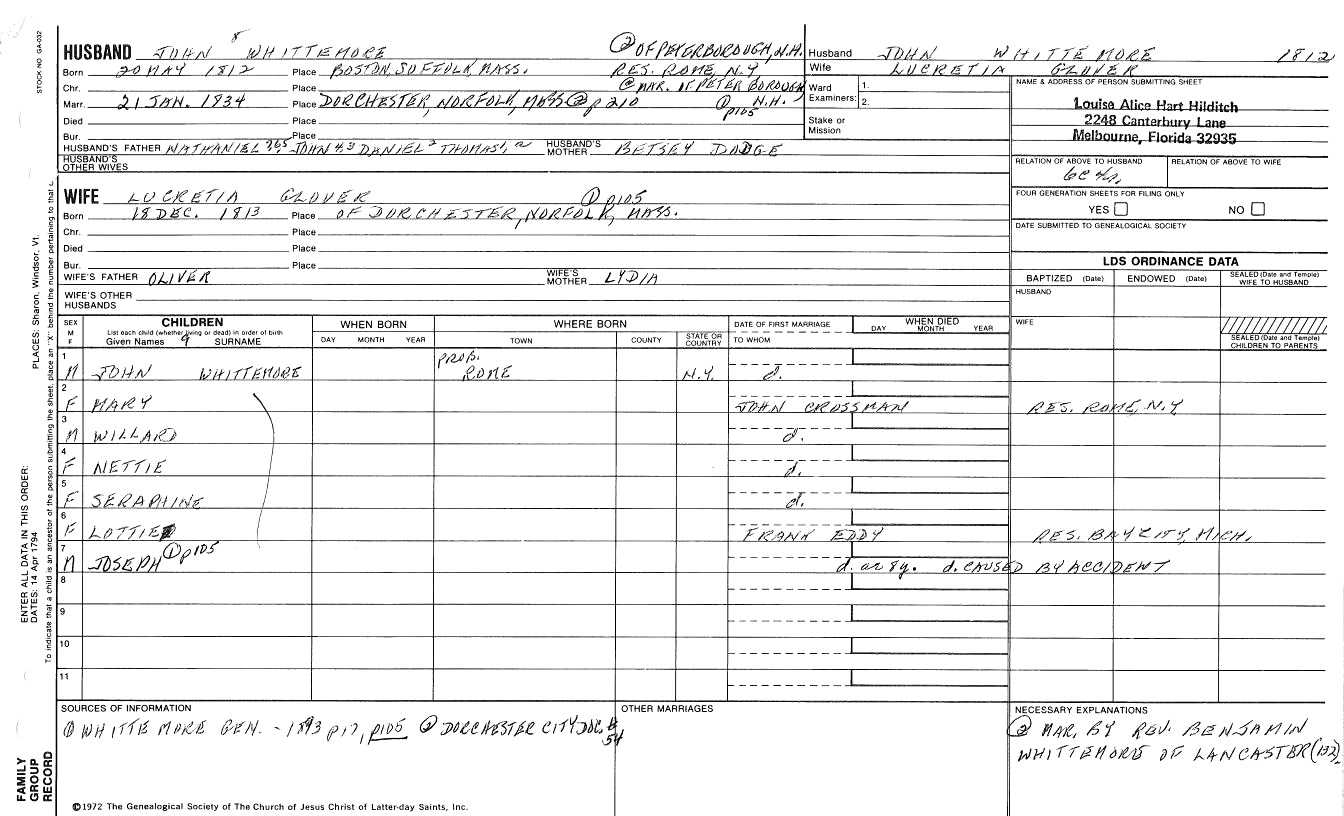 STOCK NO. GA-032
HUSBAND JOHN 8 WHITTEMORE ② OF PETERBOROUGH, N.H.
Born 20 MAY 1812 Place BOSTON, SUFFOLK, MASS. RES. ROME, N.Y
Chr. Place @ MAR. OF PETERBOROUGH N.H.
Marr. 21 JAN. 1834 Place DORCHESTER, NORFOLK, MASS ② p 210 ① p105
Died Place
Bur. Place
HUSBAND'S FATHER NATHANIEL JOHN DANIEL THOMAS HUSBAND'S MOTHER BETSEY DODGE
HUSBAND'S OTHER WIVES
Husband JOHN WHITTEMORE 1812
Wife LUCRETIA GLOVER
Ward Examiners: 1. 2.
Stake or Mission
NAME & ADDRESS OF PERSON SUBMITTING SHEET
Louise Alice Hart Hilditch
2248 Canterbury Lane
Melbourne, Florida 32935
RELATION OF ABOVE TO HUSBAND RELATION OF ABOVE TO WIFE
FOUR GENERATION SHEETS FOR FILING ONLY
YES NO
DATE SUBMITTED TO GENEALOGICAL SOCIETY
WIFE LUCRETIA GLOVER ① p105
Born 18 DEC. 1813 Place OF DORCHESTER, NORFOLK, MASS.
Chr. Place
Died Place
Bur. Place
WIFE'S FATHER OLIVER WIFE'S MOTHER LYDIA
WIFE'S OTHER HUSBANDS
LDS ORDINANCE DATA
BAPTIZED (Date) ENDOWED (Date) SEALED (Date and Temple) WIFE TO HUSBAND
HUSBAND
WIFE
SEALED (Date and Temple) CHILDREN TO PARENTS
SEX M F
CHILDREN
List each child (whether living or dead) in order of birth
Given Names 9 SURNAME
WHEN BORN
DAY MONTH YEAR
WHERE BORN
TOWN COUNTY STATE OR COUNTRY
DATE OF FIRST MARRIAGE
TO WHOM
WHEN DIED
DAY MONTH YEAR
1 M JOHN WHITTEMORE PROB. ROME N.Y. d.
2 F MARY JOHN CROSSMAN RES. ROME, N.Y
3 M WILLARD d.
4 F NETTIE d.
5 F SERAPHINE d.
6 F LOTTIE FRANK EDDY RES. BAY CITY, MICH.
7 M JOSEPH ① p105 d. ar 8y. d. CAUSED BY ACCIDENT
8
9
10
11
SOURCES OF INFORMATION
① WHITTEMORE GEN. - 1893 p17, p105 ② DORCHESTER CITY DOC.
OTHER MARRIAGES
NECESSARY EXPLANATIONS
② MAR. BY REV. BENJAMIN
WHITTEMORE OF LANCASTER (132)
©1972 The Genealogical Society of The Church of Jesus Christ of Latter-day Saints, Inc.
FAMILY GROUP RECORD
ENTER ALL DATA IN THIS ORDER:
DATES: 14 Apr 1794
PLACES: Sharon, Windsor, Vt.
To indicate that a child is an ancestor of the person submitting the sheet, place an "X" behind the number pertaining to that